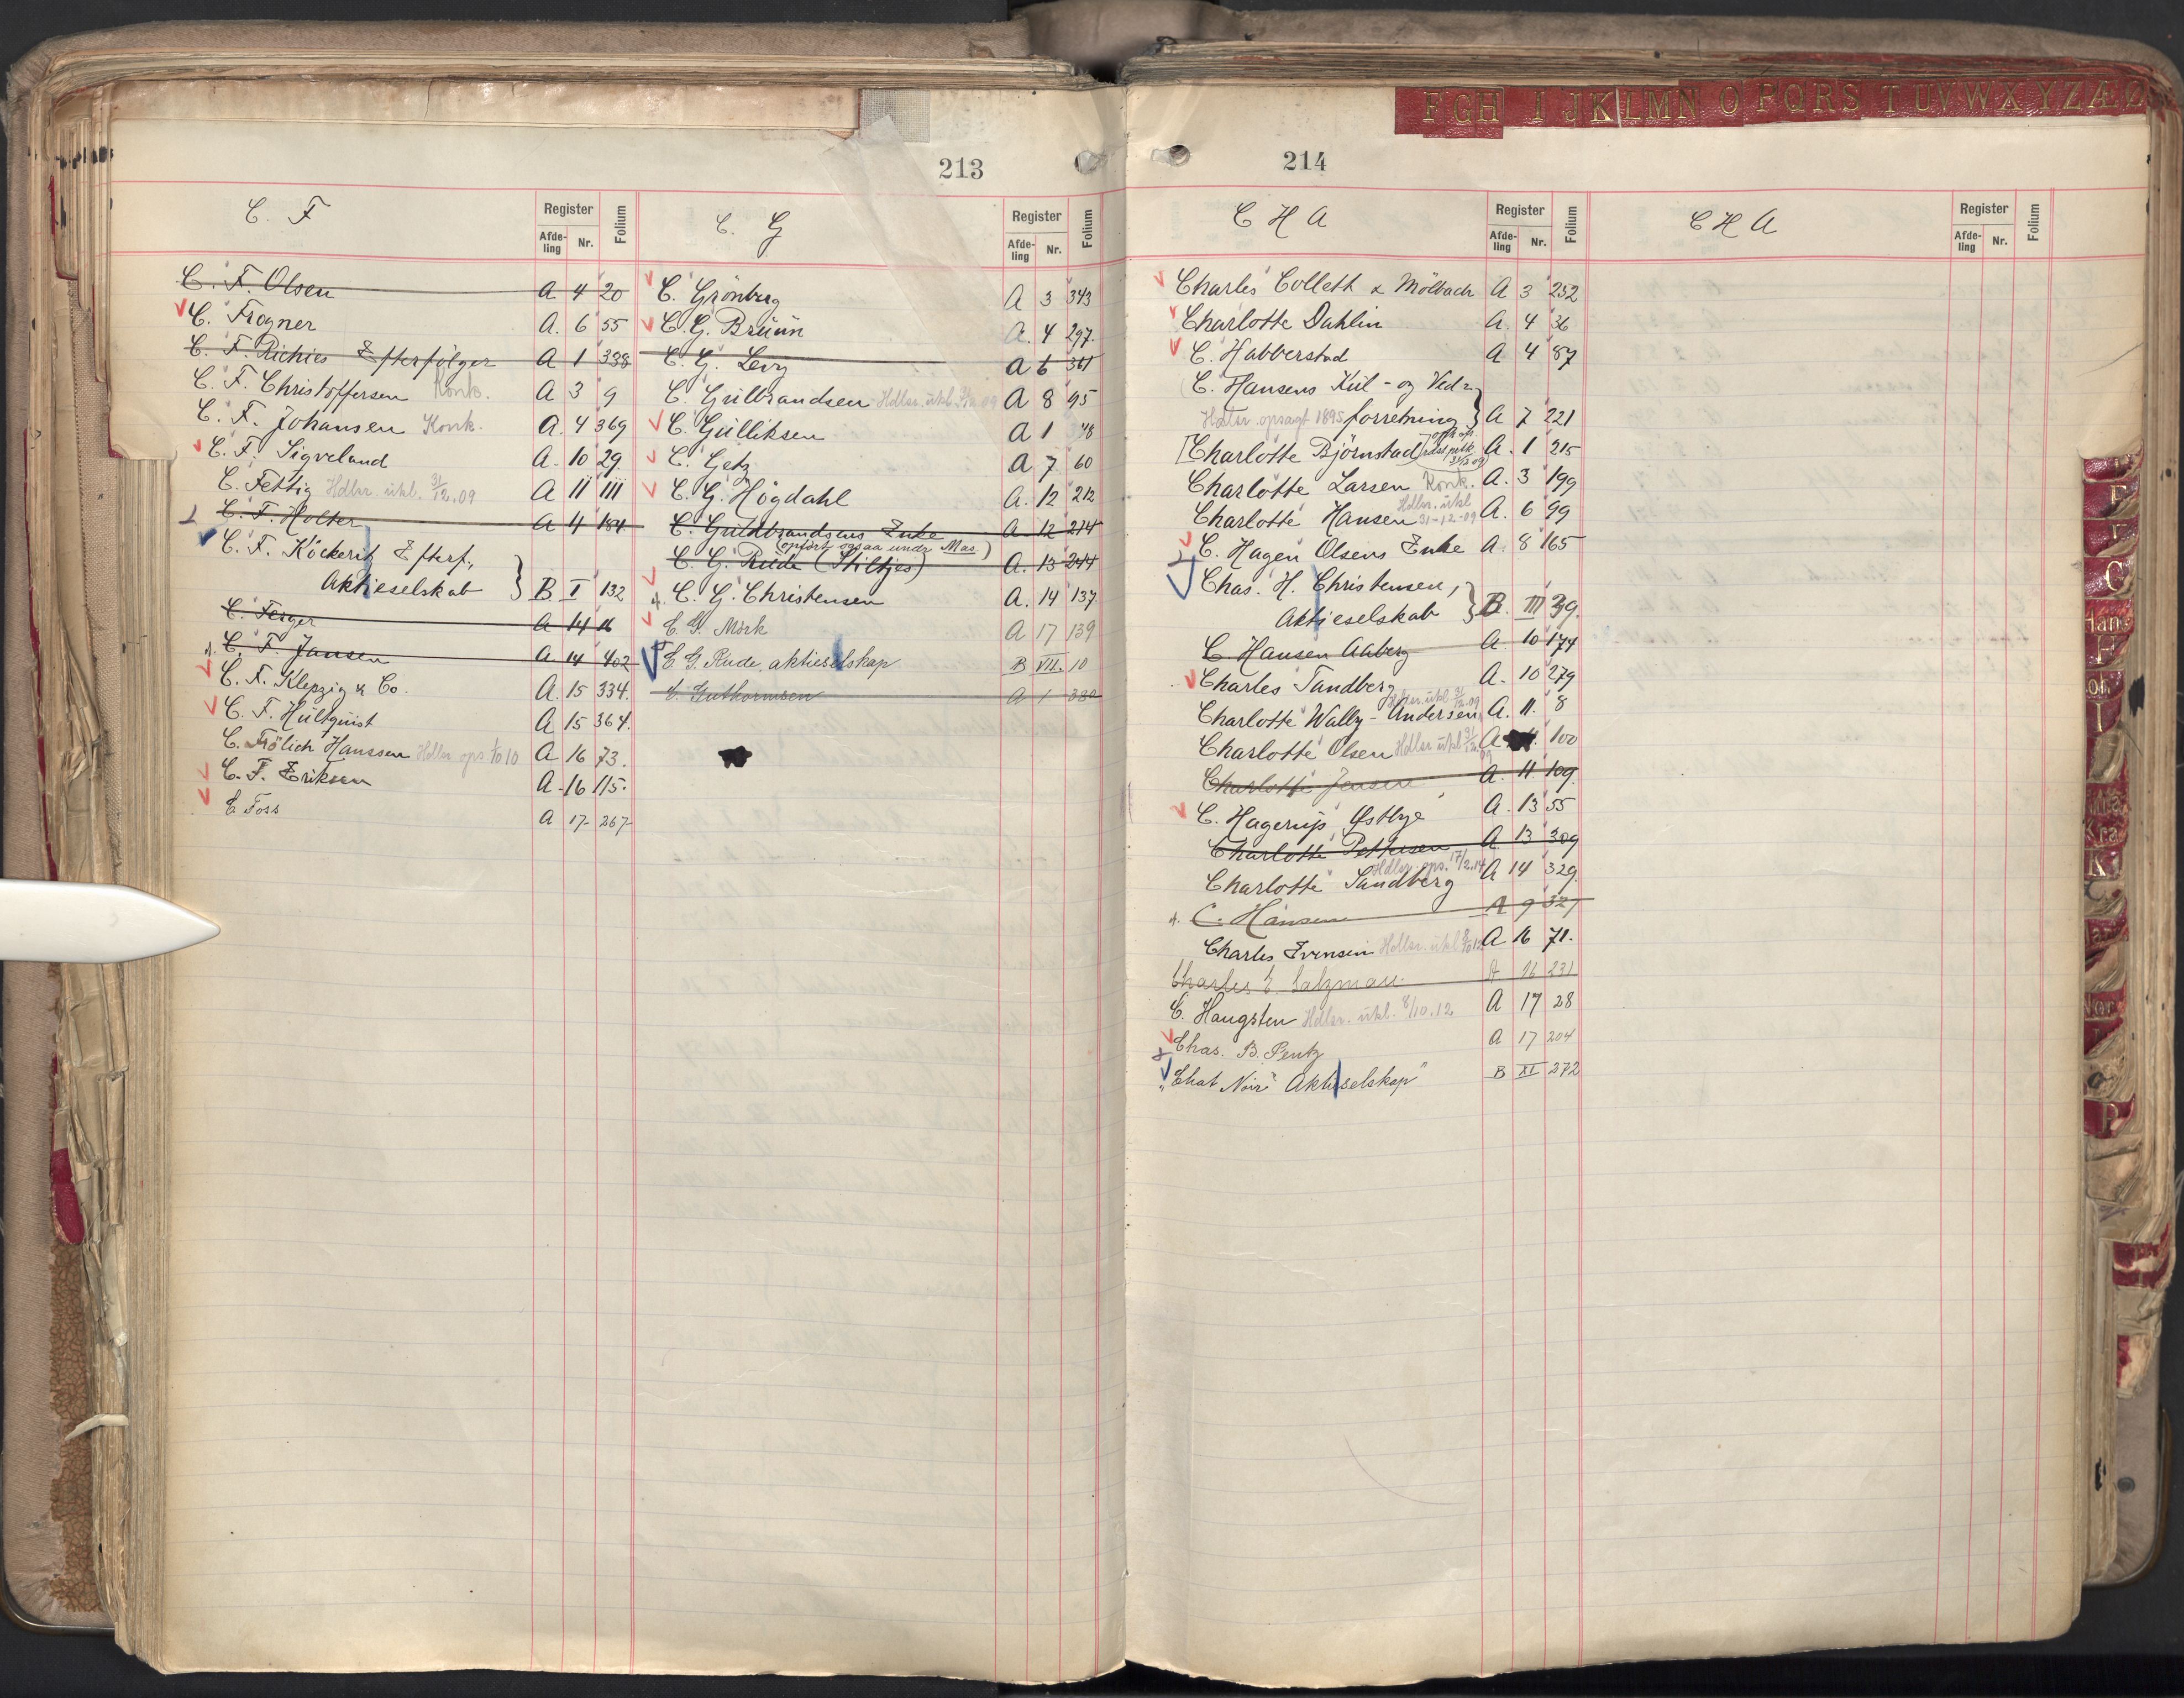 213
C. F
Register
Afde-
ling
Nr.
Folium
C. F. Olsen A 4 20
C. Frogner A. 6 55
C. F. Richies Efterfölger A 1 338
C. F. Christoffersen Konk. A 3 9
C. F. Johansen Konk. A. 4 369
C. F. Sigveland A. 10 29
C. Fettig Hdlsr. utl. 31/12.09 A 11 111
C. F. Holter A 4 184
C. F. Köckerit Efterf.,
Aktieselskab } B I 132
C. Ferger A 14 16
C. F. Jansen A. 14 402
C. F. Klepzig & Co. A. 15 334.
C. F. Hultquist A 15 364.
C. Frölich Hanssen Hdlsr ops 10 A 16 73.
C. F. Eriksen A. 16 115.
C. Foss A 17 267
C. G
Register
Afde-
ling
Nr.
Folium
C. Grönberg A 3 343
C. G. Bruun A. 4 297.
C. G. Levy A 6 361
C. Gulbrandsen Hdlsr. utl. 09 A 8 95
C. Gulliksen A 1 48
C. Getz A 7 60
C. G. Högdahl A. 12 212
C. Guldbrandsens Enke A. 12 274
(opfört ogsaa under Mas.)
C. G. Rude (Stiltjes) A. 13 244
C. G. Christensen A. 14 137
C. G. Mörk A 17 139
C. G. Rude, aktieselskap B VII. 10
C. Guthormsen A 1 380
214
C H A
Register
Afde-
ling
Nr.
Folium
Charles Colleth & Mölbach A 3 252
Charlotte Dahlin A. 4 36
C. Habberstad A 4 87
C. Hansens Kul- og Ved-
Hdlsr. opsagt 1895 forretning } A 7 221
[Charlotte Björnstad] A. 1 215
Charlotte Larsen Konk. A. 3 199
Hdlsr. utl.
Charlotte Hansen 31-12-09 A. 6 99
C. Hagen Olsens Enke A. 8 165
Chas. H. Christensen,
Aktieselskab } B. III 39.
C. Hansen Aaberg A. 10 174
Charles Tandberg A. 10 279
Hdlsr. utl. 31/12.09
Charlotte Wally-Andersen A. 11. 8
Charlotte Olsen Hdlsr utl 31/12 09 A 100
Charlotte Jensen A. 11 109.
C. Hagerup Østbye A. 13 55
Charlotte Pettersen A 13 309
Hdlsr. ops. 17/2.14
Charlotte Sandberg A 14 329.
C. Hansen A 9 327
Charles Evensen Hdlsr. utl. A 16 71.
Charles E. Salzman A 16 231
C. Haugsten Hdlsr. utl. 8/10.12 A 17 28
Chas. B. Pentz A 17 204
"Chat Noir" Aktieselskap" B XI 272
C H A
Register
Afde-
ling
Nr.
Folium
F G H I J K L M N O P Q R S T U V W X Y Z Æ Ø